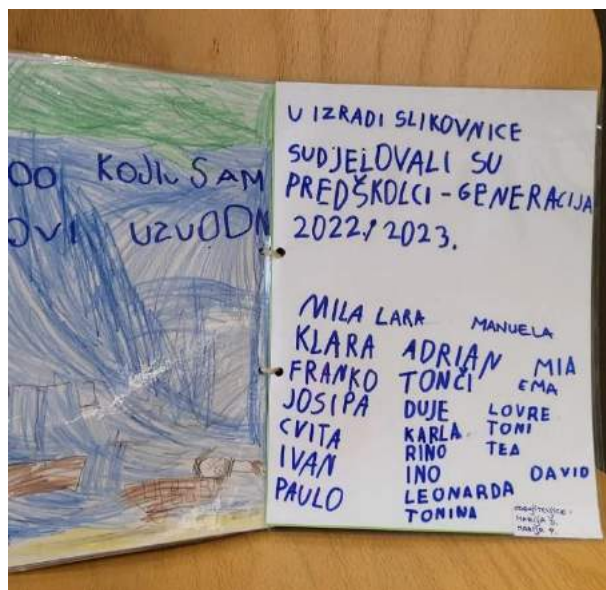 KOJIM SAM
UZVODN
U IZRADI SLIKOVNICE
SUDJELOVALI SU
PREDŠKOLCI - GENERACIJA
2022./2023.
MILA LARA MANUELA
KLARA ADRIAN MIA
FRANKO TONČI EMA
JOSIPA DUJE LOVRE
CVITA KARLA TONI
IVAN RINO TEA
PAULO INO DAVID
LEONARDA
TONINA